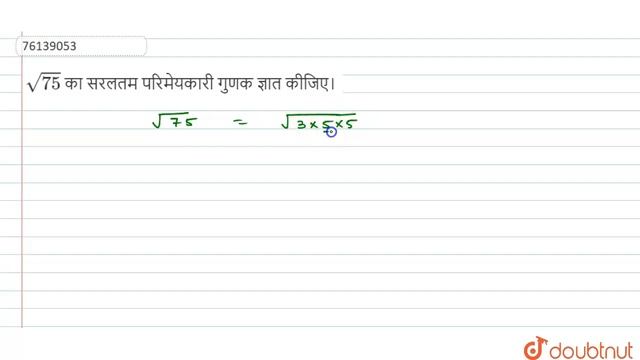 76139053
√75 का सरलतम परिमेयकारी गुणक ज्ञात कीजिए।
√75 = √3×5×5
doubtnut